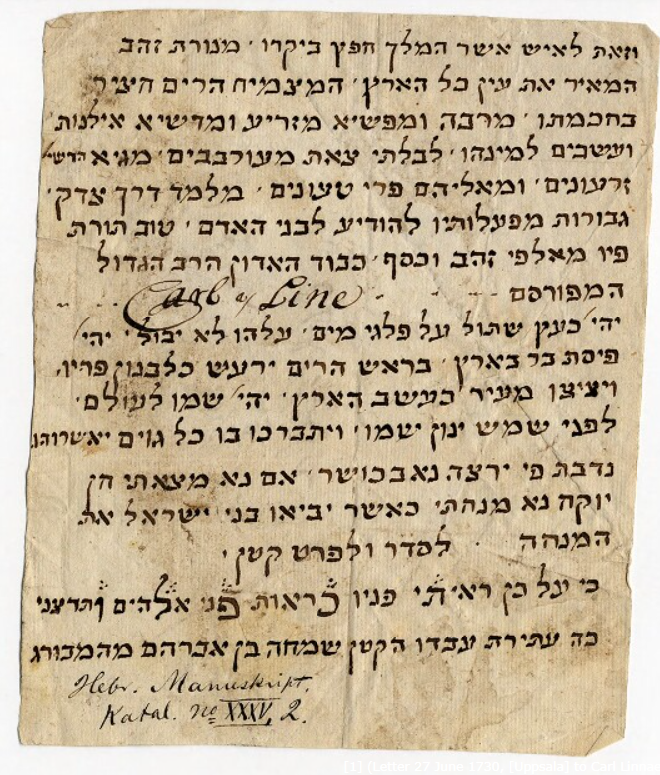 וזאת לאיש אשר המלך חפץ ביקרו׳ מנורת זהב
המאיר את עין כל הארץ׳ המצמיח הרים חציר
בחכמתו׳ מרבה ומפשיא מזריע ומדשיא אילנות
ועשבים למינהו׳ לבלתי צאת מעורבבים׳ מגיא
זרעונים׳ ומאליהם פרי טעונים׳ מלמד דרך צדק׳
גבורות מפעלותיו להודיע לבני האדם׳ טוב תורת
פיו מאלפי זהב וכסף׳ כבוד האדון הרב הגדול
המפורסם Carl Line
יהי׳ כעץ שתול על פלגי מים׳ עלהו לא יבול׳ יהי׳
פיסת בר בארץ׳ בראש הרים ירעש כלבנון פריו׳
ויציצו מעיר כעשב הארץ׳ יהי׳ שמו לעולם׳
לפני שמש ינון שמו׳ ויתברכו בו כל גוים יאשרוהו
נדבת פי ירצה נא בכושר׳ אם נא מצאתי חן
יוקח נא מנחתי כאשר יביאו בני ישראל את
המנחה לסדר ולפרט קטן׳
כי על כן ראיתי פניו כראות פני אלהים ותרצני
כה עתירת עבדו הקטן שמחה בן אברהם מהמבורג
Hebr. Manuskript.
Katal. no XXXV, 2.